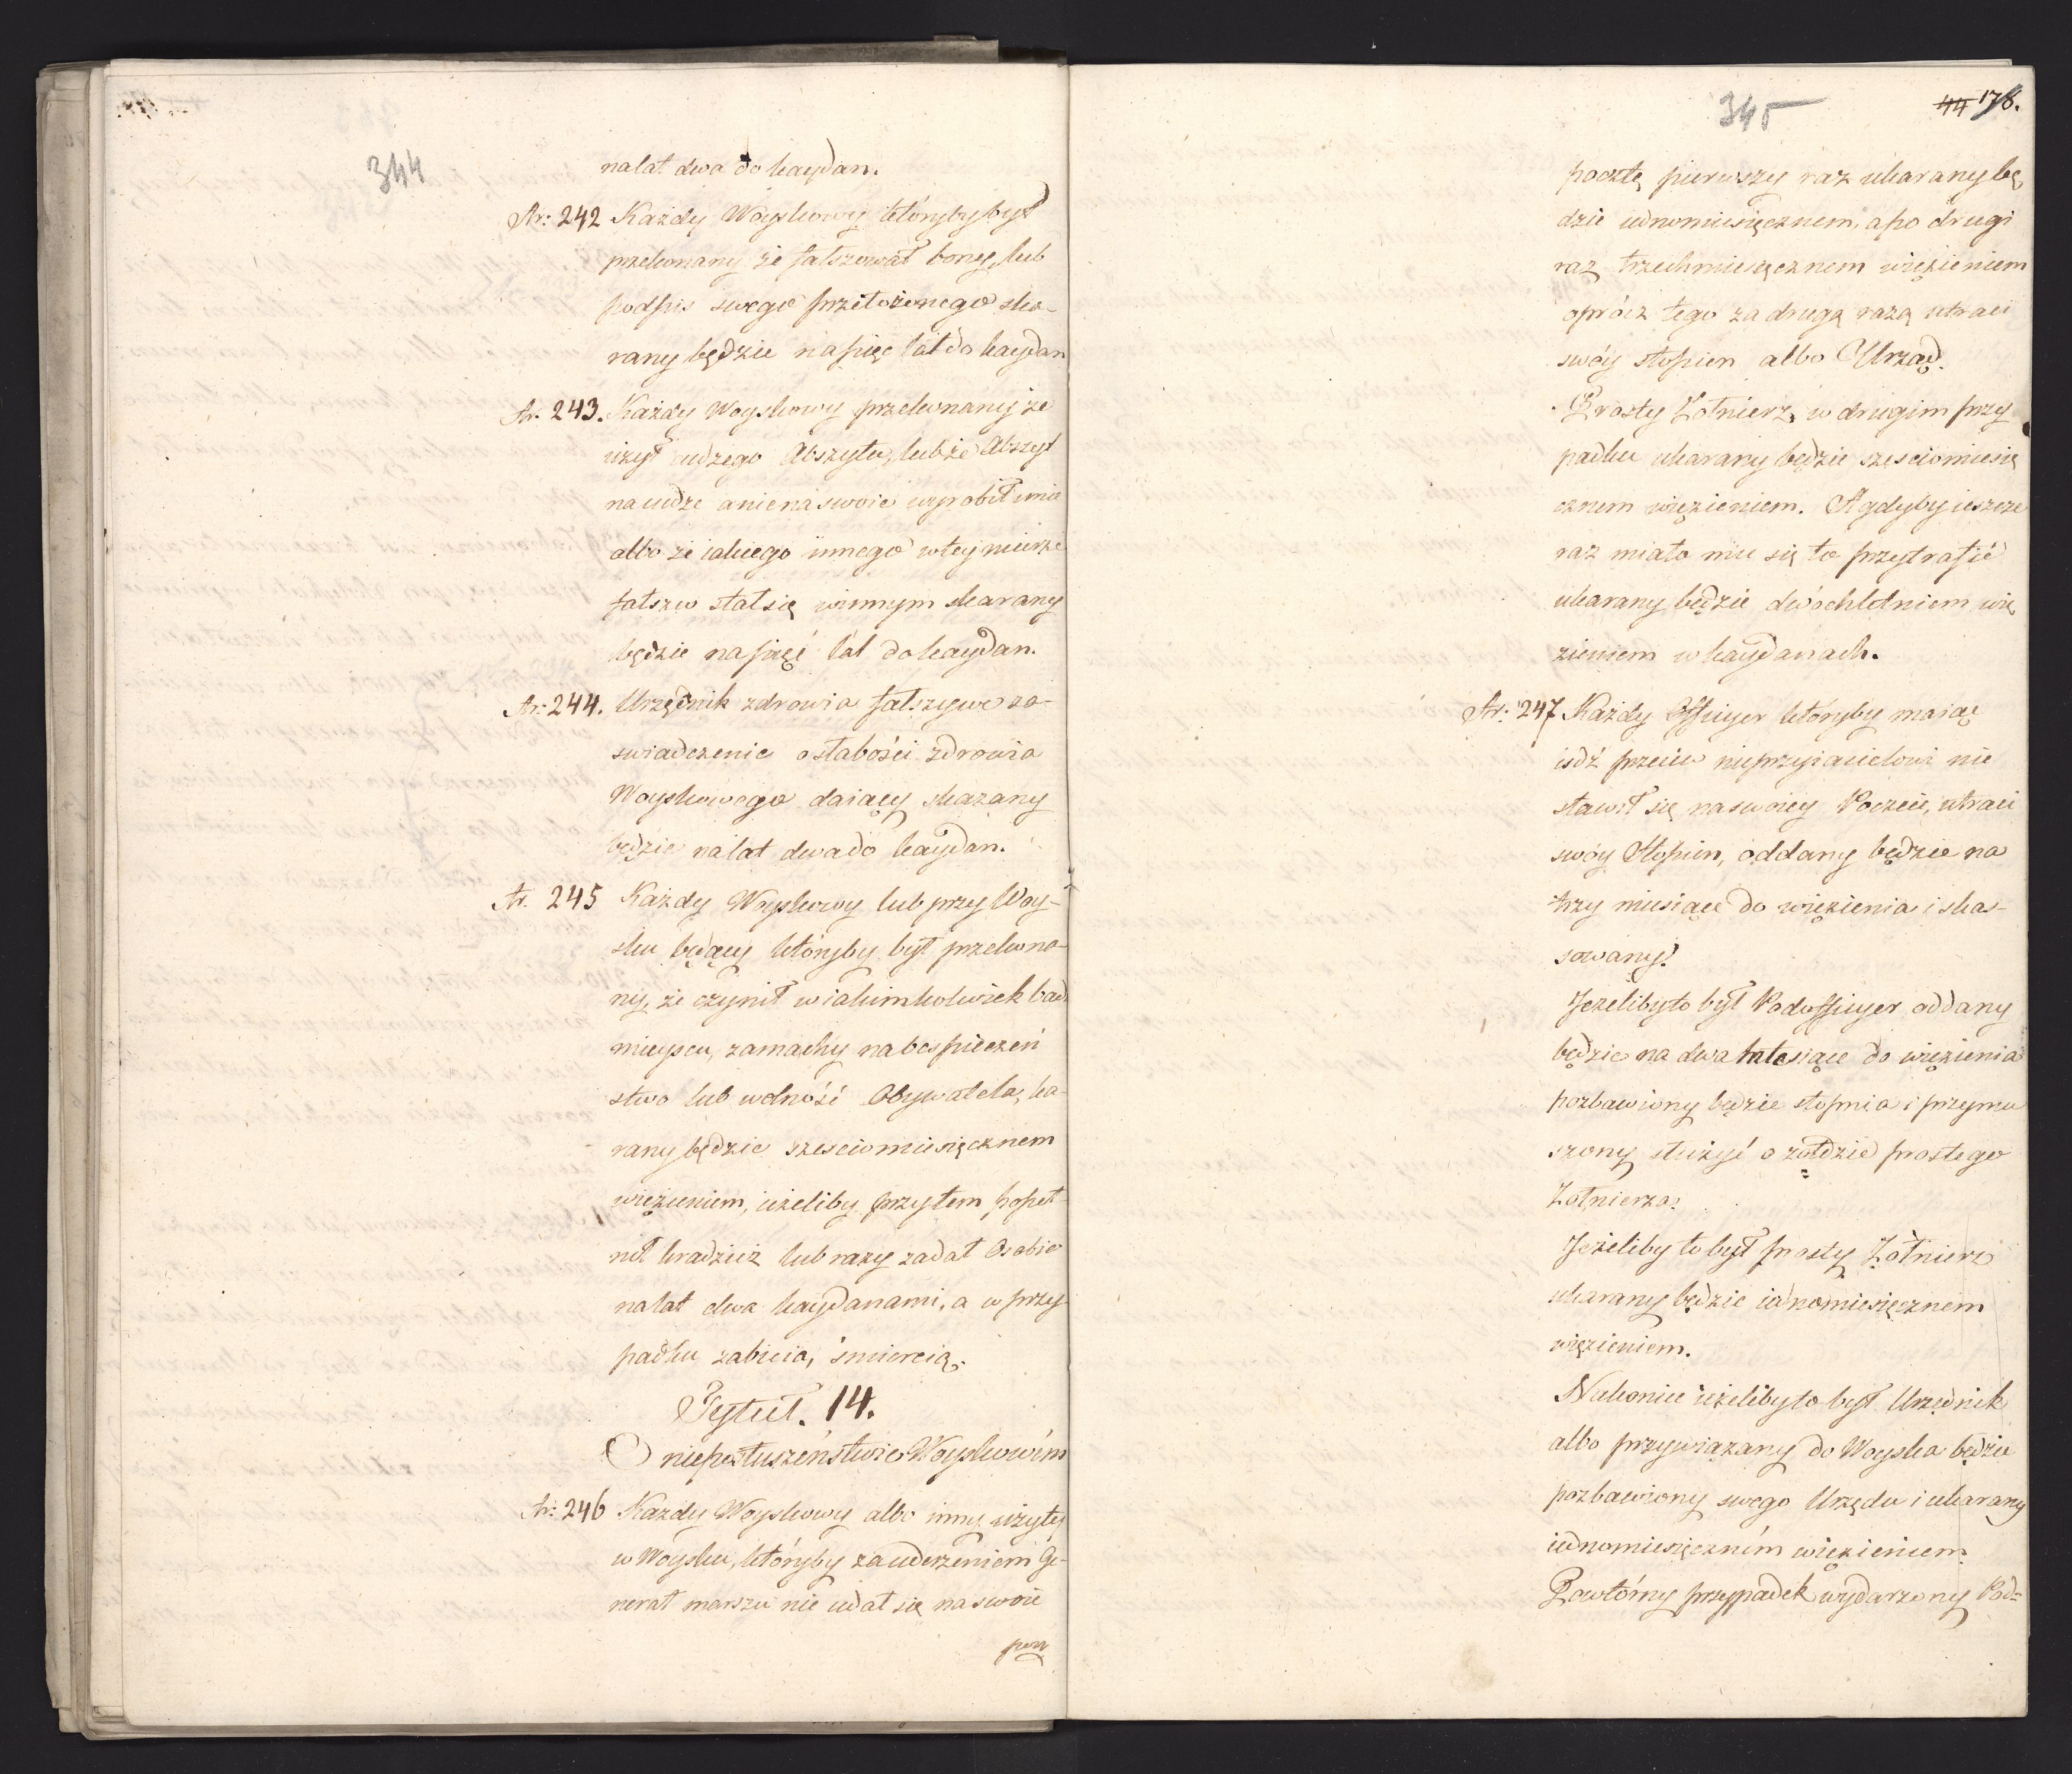 344
na lat dwa do kaydan.
Ar: 242 Każdy Woyskowy któryby był
przekonany że fałszował bony, lub
podpis swego przełożonego ska-
rany będzie na pięc lat do kaydan
Ar. 243. Każdy Woyskowy przekonany że
użył cudzego Abszytu, lub że Abszyt
na cudze a nie na swoie wyrobił imie
albo że iakiego innego w tey mierze
fałszu stał się winnym skarany
będzie na pięć lat do kaydan.
Ar: 244. Urzędnik zdrowia fałszywe za-
swiadczenie o słabości zdrowia
Woyskowego daiący skazany
będzie na lat dwa do kaydan.
Ar. 245 Każdy Woyskowy lub przy Woy-
sku będący któryby był przekona-
ny, że czynił w iakimkolwiek bad
mieyscu, zamachy na bespieczeń
stwo lub wolność Obywatela, ka-
rany będzie sześciomiesięcznem
więzieniem, ieżeliby przytem popeł-
nił kradzież lub razy zadał Osobie
na lat dwa kaydanami, a w przy-
padku zabicia, śmiercią.
Tytuł. 14.
O nieposłuszeństwie Woyskowém
Ar: 246 Każdy Woyskowy albo inny użyty
w Woysku, któryby za uderzeniem Ge-
nerał marszu nie udał się na swoie
pocz
345
44 178.
pocztę pierwszy raz ukarany bę
dzie iednomiesięcznem, a po drugi
raz trzechmiesięcznem więzieniem
oprócz tego za drugą razą utraci
swóy stopien albo Urząd.
Prosty Żołnierz, w drugim przy
padku ukarany będzie szesciomiesię
cznem więzieniem. A gdyby ieszcze
raz miało mu się to przytrafić
ukarany będzie dwóchletniem wię
zieniem w kaydanach.
Ar: 247 Każdy Officyer któryby maiąc
isdź przeciw nieprzyiacielowi nie
stawił się na swoiey Poczcie, utraci
swóy Stopien, oddany będzie na
trzy miesiące do więzienia i skas-
sowany.
Jeżeliby to był Podofficyer oddany
będzie na dwa miesiące do więzienia
pozbawiony będzie stopnia i przymu
szony służyć o żołdzie prostego
Żołnierza.
Jeżeliby to był prosty Żołnierz
ukarany będzie iednomiesięcznem
więzieniem.
Nakoniec ieżeliby to był Urzędnik
albo przywiązany do Woyska będzie
pozbawiony swego Urzędu i ukarany
iednomiesięczném więzieniem.
Powtórny przypadek wydarzony Pod=